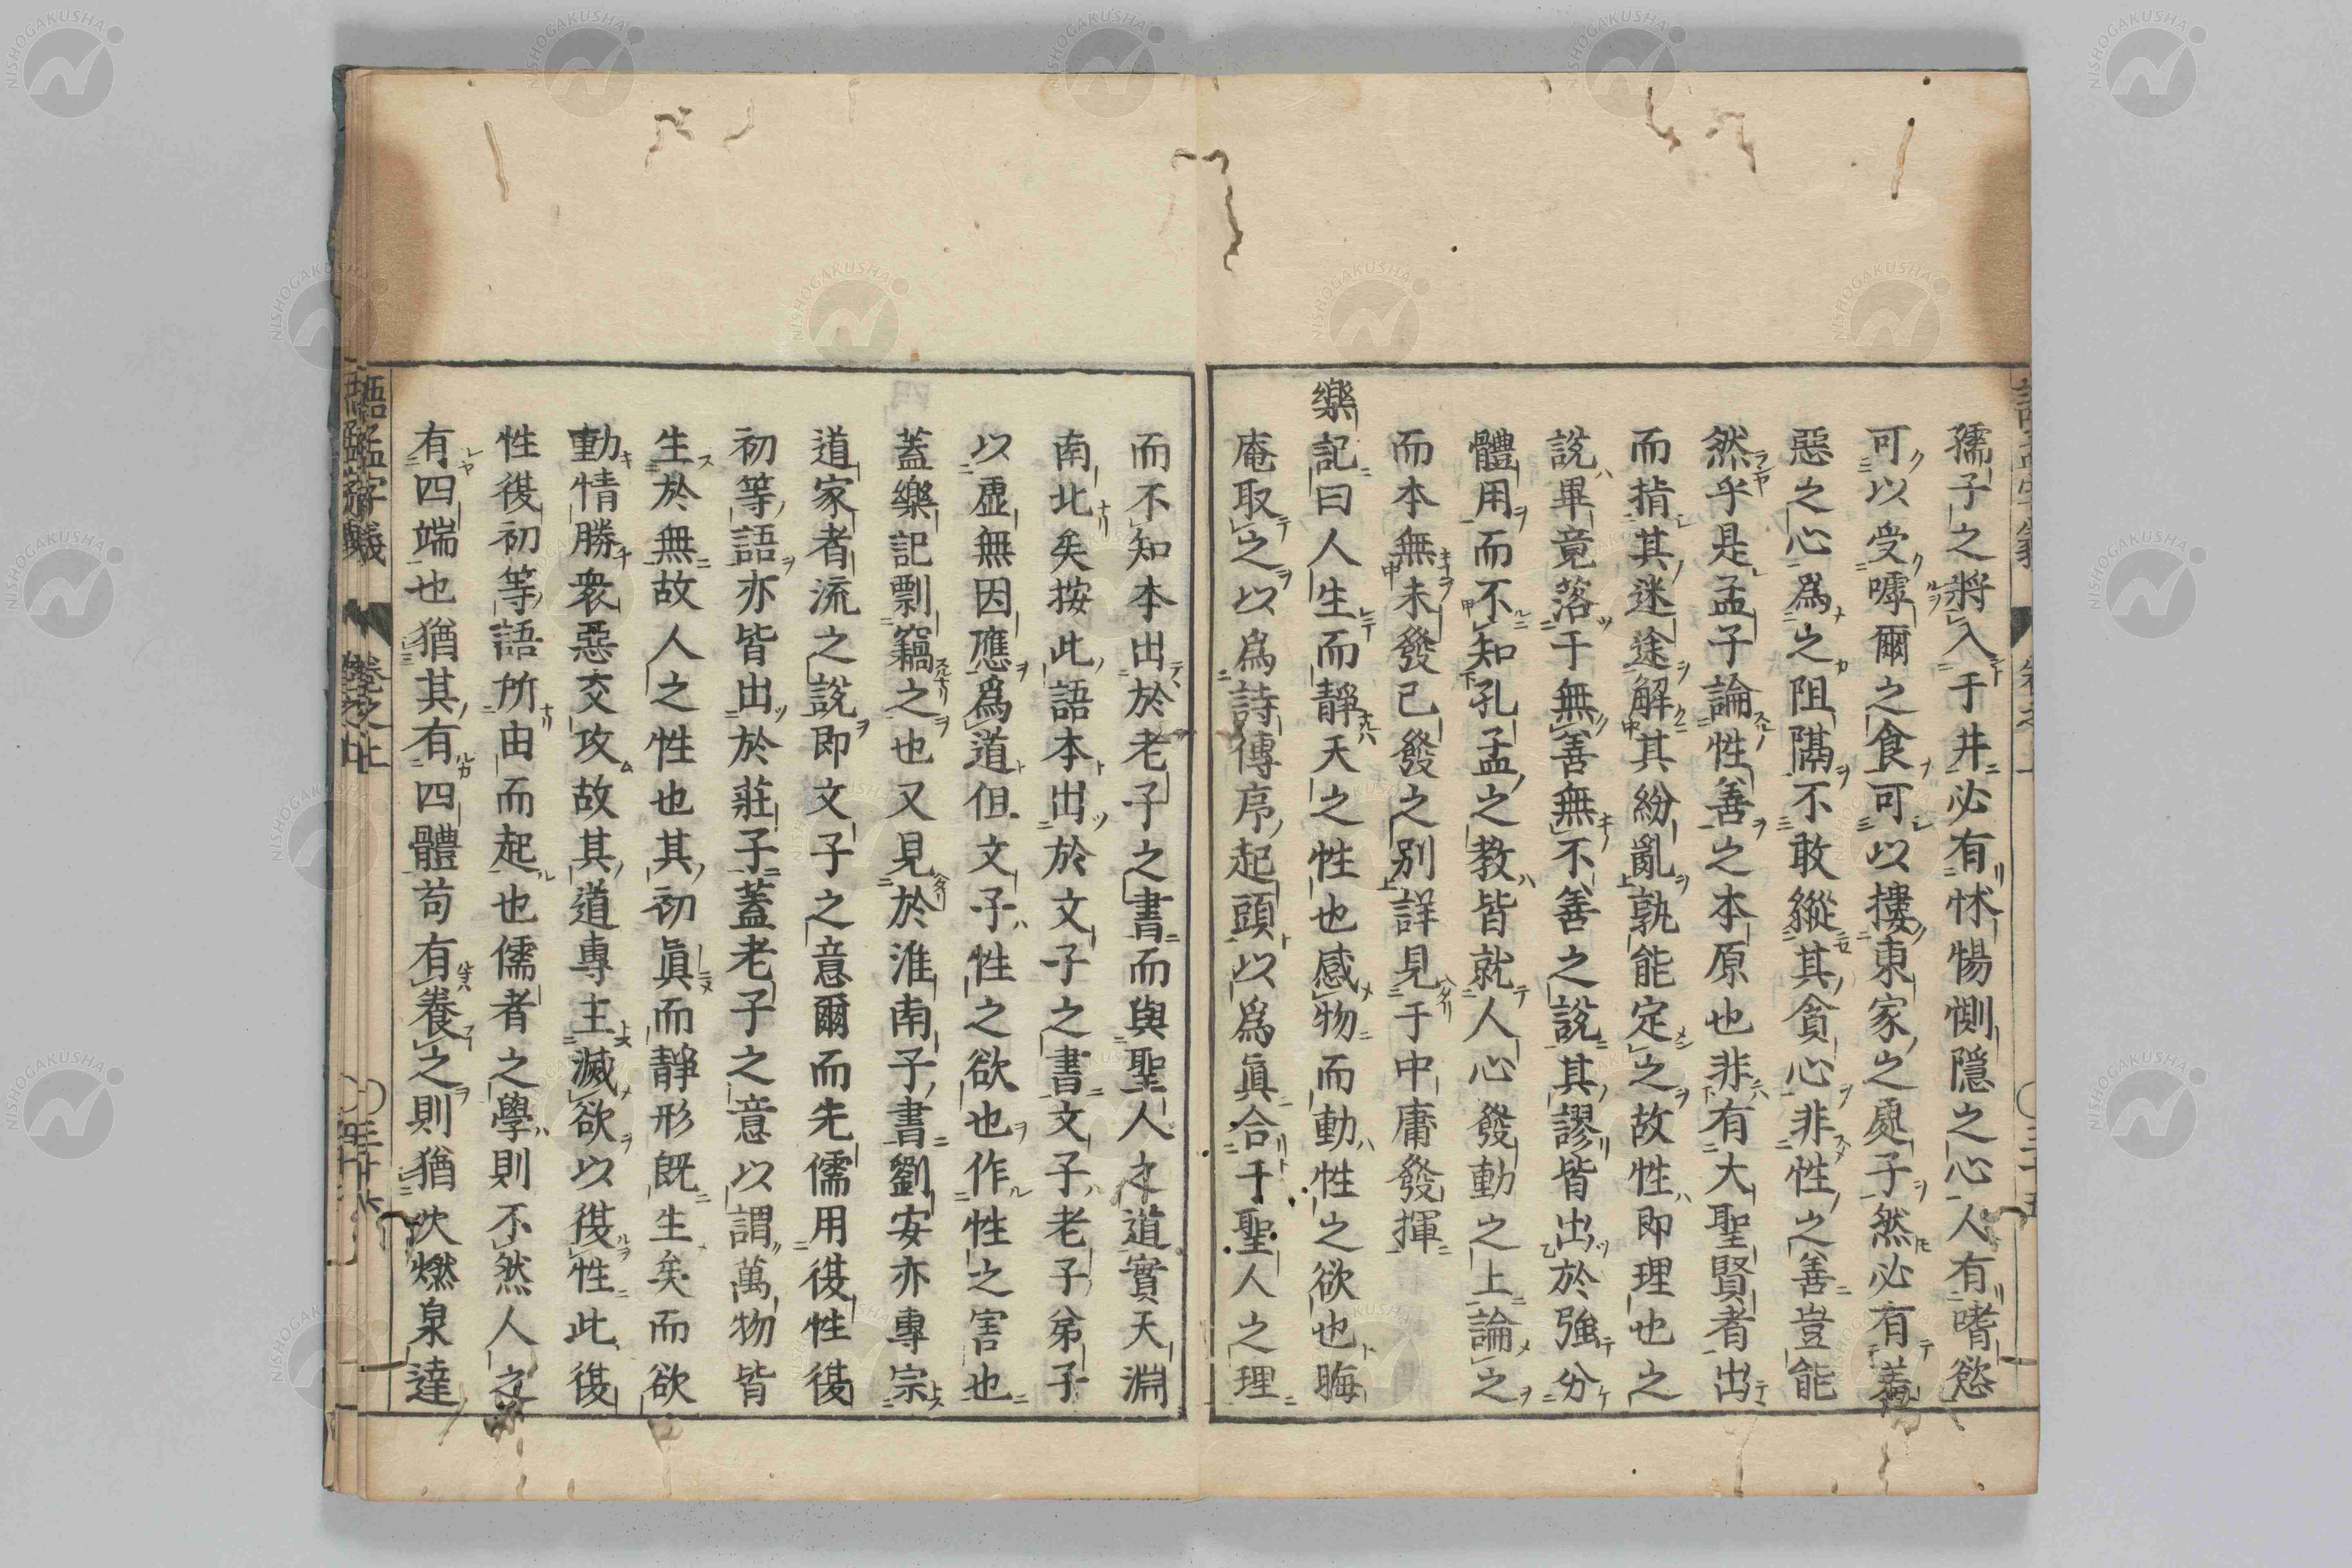 孺子之將入于井必有怵惕惻隱之心人有嗜慾
可以受嘑爾之食可以摟東家之處子然必有羞
惡之心爲之阻隔不敢縱其貪心非性之善豈能
然乎是孟子論性善之本原也非有大聖賢者出
而指其迷途解其紛亂孰能定之故性即理也之
說畢竟落于無善無不善之說其謬皆出於強分
體用而不知孔孟之教皆就人心發動之上論之
而本無未發已發之別詳見于中庸發揮
樂記曰人生而靜天之性也感物而動性之欲也晦
庵取之以爲詩傳序起頭以爲眞合于聖人之理
而不知本出於老子之書而與聖人之道實天淵
南北矣按此語本出於文子之書文子老子弟子
以虛無因應爲道但文子性之欲也作性之害也
蓋樂記剽竊之也又見於淮南子書劉安亦專宗
道家者流之說即文子之意爾而先儒用復性復
初等語亦皆出於莊子蓋老子之意以謂萬物皆
生於無故人之性也其初眞而靜形既生矣而欲
動情勝衆惡交攻故其道專主滅欲以復性此復
性復初等語所由而起也儒者之學則不然人之
有四端也猶其有四體苟有養之則猶火燃泉達
語孟字義
卷之上
三十六
NISHOGAKUSHA